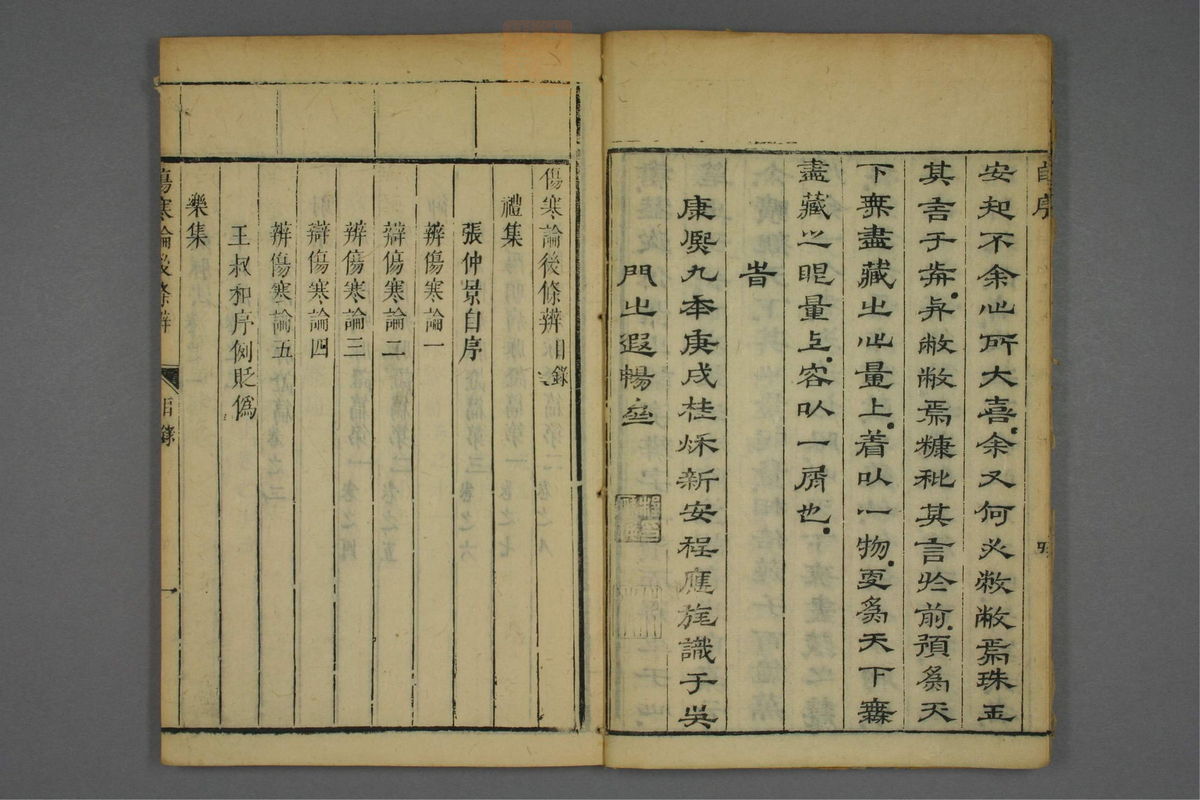 自序
安知不余心所大喜余又何必敝敝焉珠玉
其言于前并敝敝焉糠秕其言於前預為天
下無盡藏出此量上着以一物更為天下無
盡藏之眼量上容以一屑也
旹
康熙九年庚戌桂秋新安程應旄識于吳
門之遐暢
傷寒論後條辨目錄
禮集
張仲景自序
辨傷寒論一
辯傷寒論二
辨傷寒論三
辯傷寒論四
辨傷寒論五
王叔和序例貶僞
樂集
傷寒論後條辨 目錄 一